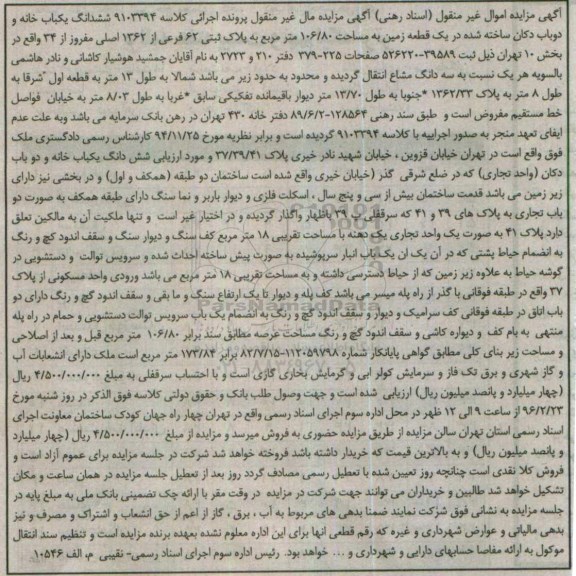 آگهی مزایده اموال غیر منقول (اسناد رهنی) آگهی مزایده مال غیر منقول پرونده اجرائی کلاسه ۹۱۰۳۳۹۴ ششدانگ یکباب خانه و
دوباب دکان ساخته شده در یک قطعه زمین به مساحت ۱۰۶/۸۰ متر مربع به پلاک ثبتی ۶۲ فرعی از ۱۳۶۲ اصلی مفروز از ۳۴ واقع در
بخش ۱۰ تهران ذیل ثبت ۳۹۵۸۹-۵۲۶۲۲۰ صفحات ۲۲۵-۳۷۹ دفتر ۲۱۰ و ۲۷۲۳ به نام آقایان جمشید هوشیار کاشانی و نادر هاشمی
بالسویه هر یک نسبت به سه دانگ مشاع انتقال گردیده و محدود به حدود زیر می باشد شمالا به طول ۱۳ متر به قطعه اول *شرقا به
طول ۸ متر به پلاک ۱۳۶۲/۳۳ *جنوبا به طول ۱۳/۷۰ متر دیوار باقیمانده تفکیکی سابق *غربا به طول ۸/۰۳ متر به خیابان فواصل
خط مستقیم مفروض است و طبق سند رهنی ۱۲۸۵۶۴-۸۹/۶/۲ دفتر خانه ۴۳۰ تهران در رهن بانک سرمایه می باشد وبه علت عدم
ایفای تعهد منجر به صدور اجراییه با کلاسه ۹۱۰۳۳۹۴ گردیده است و برابر نظریه مورخ ۹۴/۱۱/۲۵ کارشناس رسمی دادگستری ملک
فوق واقع است در تهران خیابان قزوین ، خیابان شهید نادر خیری پلاک ۳۷/۳۹/۴۱ و مورد ارزیابی شش دانگ یکباب خانه و دو باب
دکان (واحد تجاری) که در ضلع شرقی گذر (خیابان خیری واقع شده است ساختمان دو طبقه (همکف و اول) و در بخشی نیز دارای
زیر زمین می باشد قدمت ساختمان بیش از سی و پنج سال ، اسکلت فلزی و دیوار باربر و نما سنگ دارای طبقه همکف به صورت دو
باب تجاری به پلاک های ۳۹ و ۴۱ که سرقفلی پ ۳۹ باظهار واگذار گردیده و در اختیار غیر است و تنها ملکیت آن به مالکین تعلق
دارد پلاک ۴۱ به صورت یک واحد تجاری یک دهنه با مساحت تقریبی ۱۸ متر مربع کف سنگ و دیوار سنگ و سقف اندود گچ و رنگ
به انضمام حیاط پشتی که در آن یک ان یک باب انبار سرپوشیده به صورت پیش ساخته احداث شده و سرویس توالت و دستشویی در
گوشه حیاط به علاوه زیر زمین که از حیاط دسترسی داشته و به مساحت تقریبی ۱۸ متر مربع می باشد ورودی واحد مسکونی از پلاک
۳۷ واقع در طبقه فوقانی با گذر از راه پله میسر می باشد کف پله و دیوار تا یک ارتفاع سنگ و ما بقی و سقف اندود گچ و رنگ دارای دو
باب اتاق در طبقه فوقانی کف سرامیک و دیوار و سقف اندود گچ و رنگ به انضمام یک باب سرویس توالت دستشویی و حمام در راه پله
منتهی به بام کف و دیواره کاشی و سقف اندود گچ و رنگ مساحت عرصه مطابق سند برابر ۱۰۶/۸۰ متر مربع قبل و بعد از اصلاحی
و مساحت زیر بنای کلی مطابق گواهی پایانکار شماره ۱۱۲۰۵۹۷۹۸-۸۲/۷/۱۵ برابر ۱۷۳/۸۴ متر مربع است ملک دارای انشعابات آب
و گاز شهری و برق تک فاز و سرمایش کولر ابی و گرمایش بخاری گازی است و با احتساب سرقفلی به مبلغ ۴/۵۰۰/۰۰۰/۰۰۰ ریال
(چهار میلیارد و پانصد میلیون ریال) ارزیابی شده است و جهت وصول طلب بانک و حقوق دولتی کلاسه فوق الذکر در روز شنبه مورخ
۹۶/۲/۲۳ از ساعت ۹ الی ۱۲ ظهر در محل اداره سوم اجرای اسناد رسمی واقع در تهران چهار راه جهان کودک ساختمان معاونت اجرای
اسناد رسمی استان تهران سالن مزایده از طریق مزایده حضوری به فروش میرسد و مزایده از مبلغ ۴/۵۰۰/۰۰۰/۰۰۰ ریال (چهار میلیارد
و پانصد میلیون ریال) و به بالاترین قیمت که خریدار داشته باشد فروخته خواهد شد شرکت در جلسه مزایده برای عموم آزاد است و
فروش کلا نقدی است چنانچه روز تعیین شده با تعطیل رسمی مصادف گردد روز بعد از تعطیل جلسه مزایده در همان ساعت و مکان
تشکیل خواهد شد طالبین و خریداران می توانند جهت شرکت در مزایده در وقت مقر با ارائه چک تضمینی بانک ملی به مبلغ پایه در
جلسه مزایده به نشانی فوق شرکت نمایند ضمنا بدهی های مربوط به آب ، برق ، گاز از اعم از حق انشعاب و اشتراک و مصرف و نیز
بدهی مالیاتی و عوارض شهرداری و غیره که رقم قطعی انها برای این اداره معلوم نشده بعهده برنده مزایده است و تنظیم سند انتقال
موکول به ارائه مفاصا حسابهای دارایی و شهرداری و ... خواهد بود. رئیس اداره سوم اجرای اسناد رسمی- نقیبی م، الف ۱۰۵۴۶